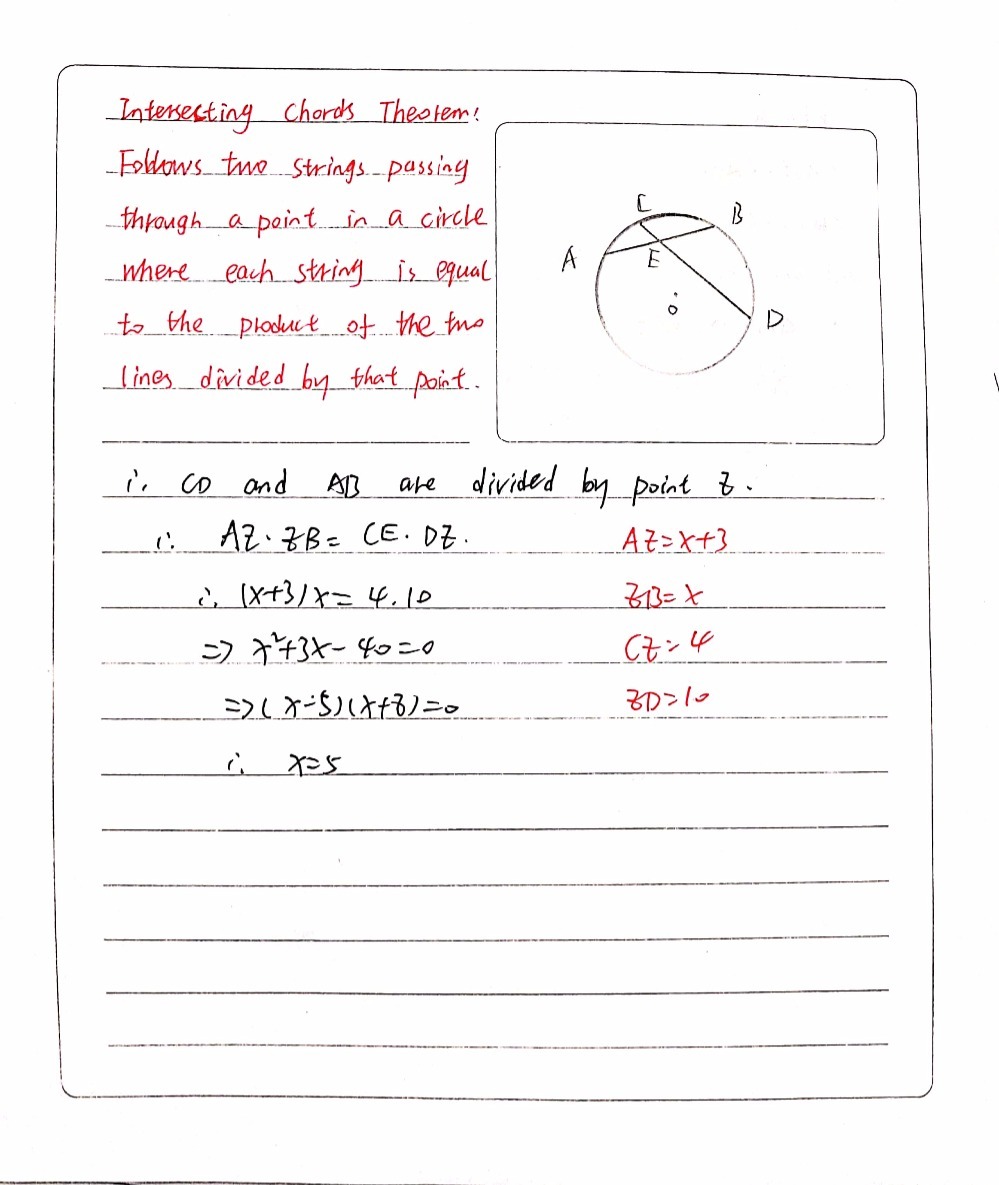 Intersecting Chords Theorem:
Follows two strings passing
through a point in a circle
where each string is equal
to the product of the two
lines divided by that point.
C
B
A
E
o
D
∵ CD and AB are divided by point Z.
∴ AZ·ZB= CE·DZ.
AZ=x+3
∴ (x+3)x= 4.10
ZB=x
=> x²+3x-40=0
CZ=4
=>(x-5)(x+8)=0
ZD=10
∴ x=5